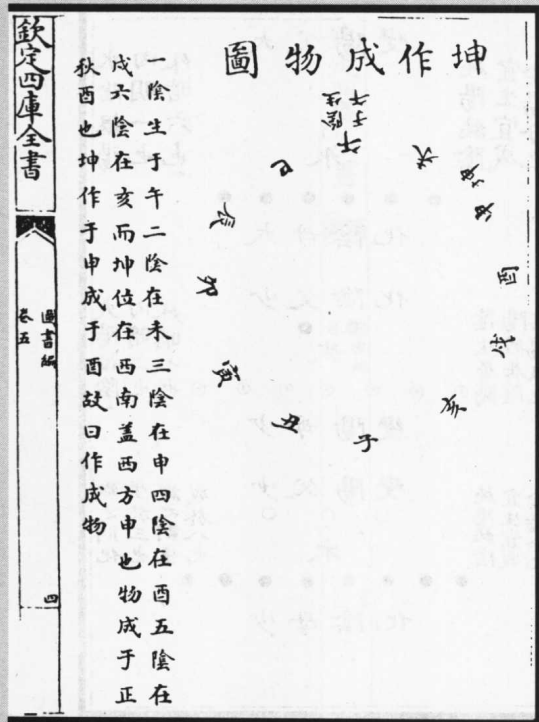 坤作成物圖
午
陰生
于午
未
申
酉
戌
亥
子
丑
寅
卯
辰
巳
一陰生于午二陰在未三陰在申四陰在酉五陰在
戌六陰在亥而坤位在西南蓋西方申也物成于正
秋酉也坤作于申成于酉故曰作成物
欽定四庫全書
圖書編
卷五
四